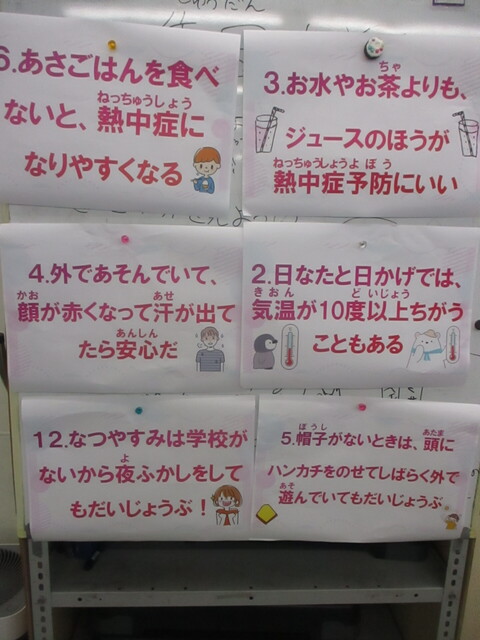 6.あさごはんを食べ
ないと、熱中症に
ねっちゅうしょう
なりやすくなる
3.お水やお茶よりも、
ちゃ
ジュースのほうが
熱中症予防にいい
ねっちゅうしょうよぼう
4.外であそんでいて、
顔が赤くなって汗が出て
かお
あせ
たら安心だ
あんしん
2.日なたと日かげでは、
気温が10度以上ちがう
きおん
どいじょう
こともある
12.なつやすみは学校が
ないから夜ふかしをして
よ
もだいじょうぶ！
5.帽子がないときは、頭に
ぼうし
あたま
ハンカチをのせてしばらく外で
遊んでいてもだいじょうぶ
あそ